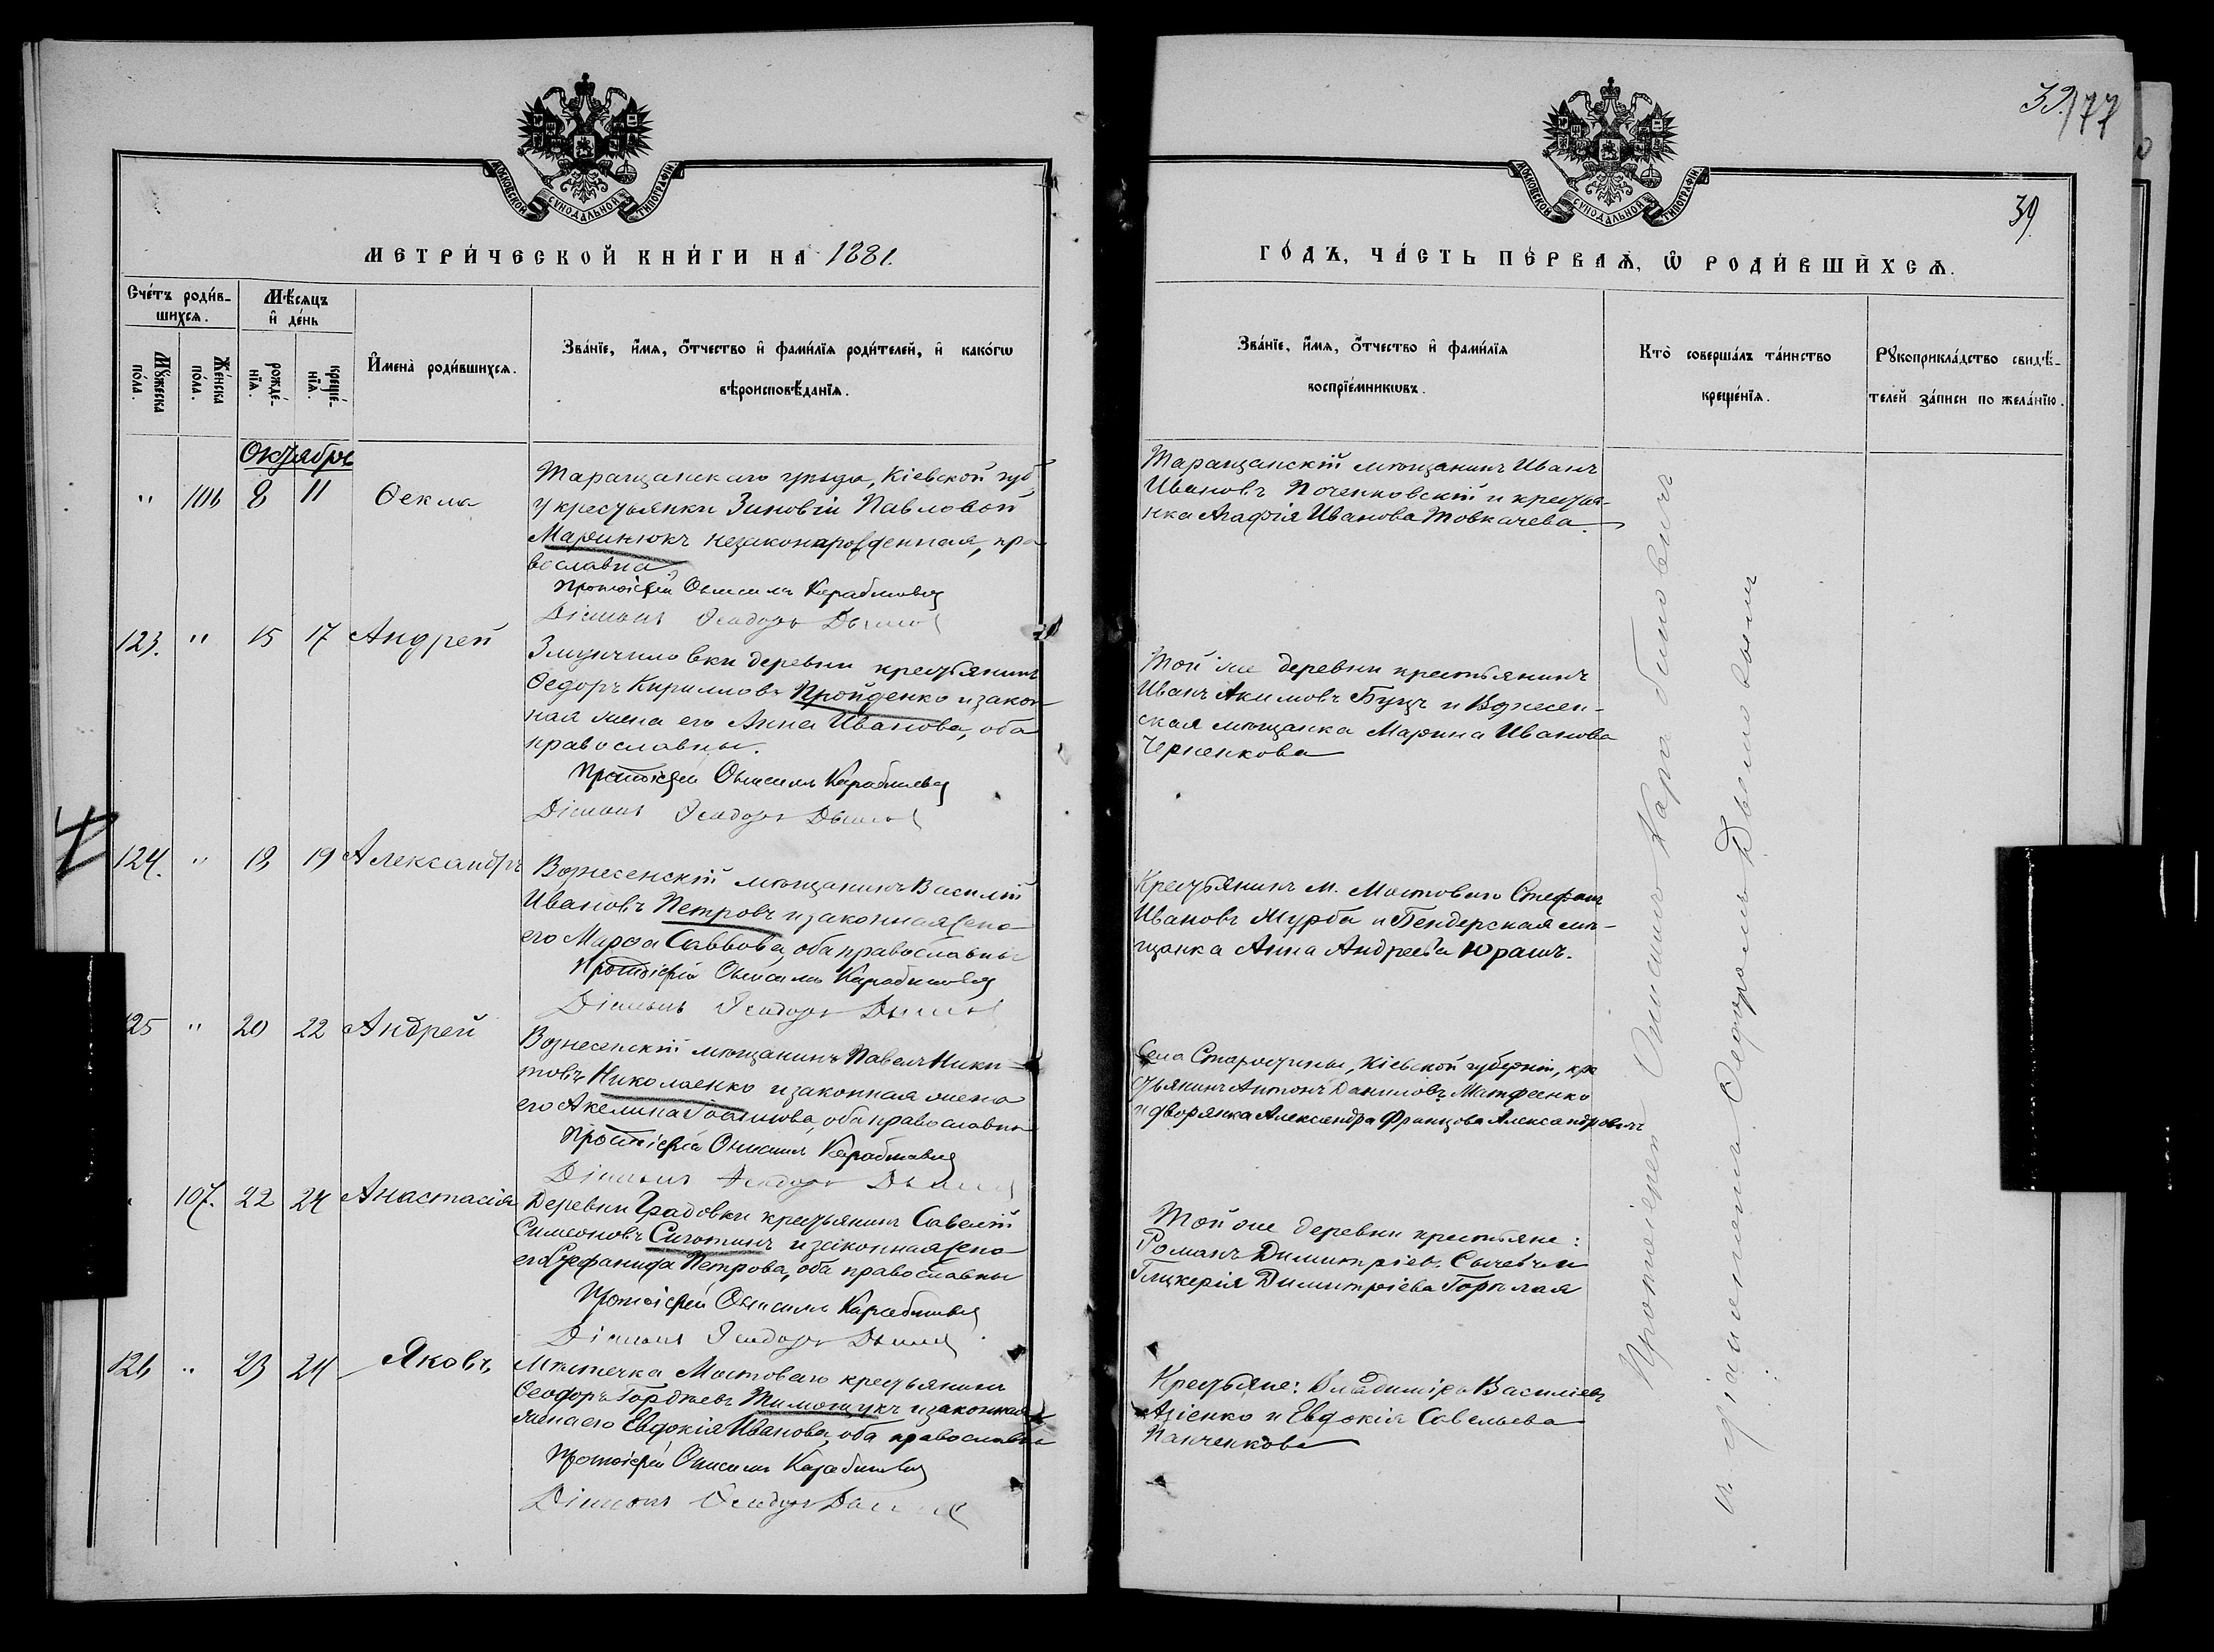 39/77
39
МОСКОВСКОЙ СѴНОДАЛЬНОЙ ТИПОГРАФІИ
МОСКОВСКОЙ СѴНОДАЛЬНОЙ ТИПОГРАФІИ
МЕТРИ́ЧЕСКОЙ КНИ́ГИ НА 1881.
ГО́ДЪ, ЧА́СТЬ ПЕ́РВАѦ, Ѡ РОДИ́ВШИХСѦ.
Сче́тъ роди́в-
шихсѧ.
Мꙋжеска по́ла.
Же́нска по́ла.
Мѣ́сѧцъ
и де́нь
рожде́-
нїѧ.
креще́-
нїѧ.
Имена̀ роди́вшихсѧ.
Зва́нїе, и́мѧ, о́тчество и фами́лїѧ роди́телей, и како́гѡ
вѣроисповѣ́данїѧ.
Зва́нїе, и́мѧ, о́тчество и фами́лїѧ
воспрїе́мникѡвъ.
Кто̀ соверша́лъ та́инство
креще́нїѧ.
Рꙋкоприкла́дство свидѣ́-
телей за́писи по жела́нїю.
Октябрь
" 106 8 11 Ѳекла
Таращанскаго уѣзда, Кіевской губ.
у крестьянки Зиновіи Павловой
Маринюкъ незаконнорожденная, пра
вославна
Протоіерей Онисимъ Карабиновичъ
Діаконъ Ѳеодоръ
Таращанскій мѣщанинъ Иванъ
Ивановъ Поченковскій и крестья-
нка Агафія Иванова Товкачева.
123. " 15 17 Андрей
деревни крестьянинъ
Ѳедоръ Кирилловъ Пройденко и закон
ная жена его Анна Иванова, оба
православны.
Протоіерей Онисимъ Карабиновичъ
Діаконъ Ѳеодоръ
Той же деревни крестьянинъ
Иванъ Акимовъ Буцъ и Вознесен-
ская мѣщанка Марина Иванова
Черненкова
124. " 18 19 Александръ
Вознесенскій мѣщанинъ Василій
Ивановъ Петровъ и законная жена
его Марѳа Саввова, оба православны
Протоіерей Онисимъ Карабиновичъ
Діаконъ Ѳеодоръ
Крестьянинъ м. Мостоваго Стефанъ
Ивановъ Мурба и Бендерская мѣ-
щанка Анна Андреева Юрашъ.
125 " 20 22 Андрей
Вознесенскій мѣщанинъ Павелъ Ники
товъ Николаенко и законная жена
его Акелина оба православны
Протоіерей Онисимъ Карабиновичъ
Діаконъ Ѳеодоръ
Села Кіевской губерніи, кре
стьянинъ Антонъ Даниловъ Матфеенко
и дворянка Александра Францова Александровичъ
107. 22 24 Анастасія
Деревни Градовки крестьянинъ Савелій
Симеоновъ Сиротинъ и законная жена
его Стефанида Петрова, оба православны
Протоіерей Онисимъ Карабиновичъ
Діаконъ Ѳеодоръ
Той же деревни крестьяне:
Романъ Димитріевъ Сычевъ и
Гликерія Димитріева
126 " 23 24 Яковъ
Мѣстечка Мостоваго крестьянинъ
Ѳеодоръ Гордѣевъ Тимощукъ и законная
жена его Евдокія Иванова, оба православны
Протоіерей Онисимъ Карабиновичъ
Діаконъ Ѳеодоръ
Крестьяне: Владиміръ Василіевъ
и Евдокія Савельева
Панченкова
Протоіерей Онисимъ Карабиновичъ
съ діакономъ Ѳеодоромъ